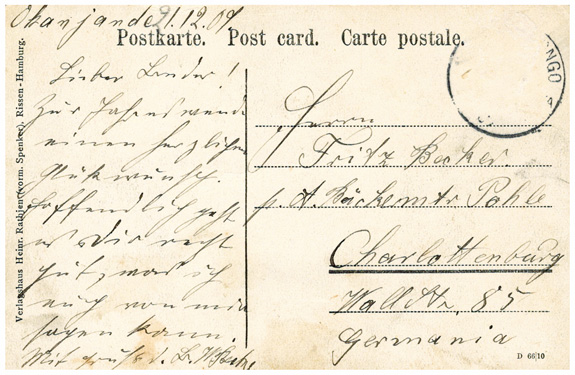 Okanjande 21.12.09
Postkarte. Post card. Carte postale.
Lieber Bruder!
Zur Jahreswende
einen herzlichen
Glückwunsch.
Hoffendlich geht
es Dir recht
gut, was ich
auch von mir
sagen kann.
Mit Gruß d. Br.
Herrn
Fritz Becker.
p. A. Bäckermstr Pohle
Charlottenburg
Wallstr. 85
Germania
NGO
Verlagshaus Heinr. Rathjen (vorm. Spenker), Rissen-Hamburg.
D 6610